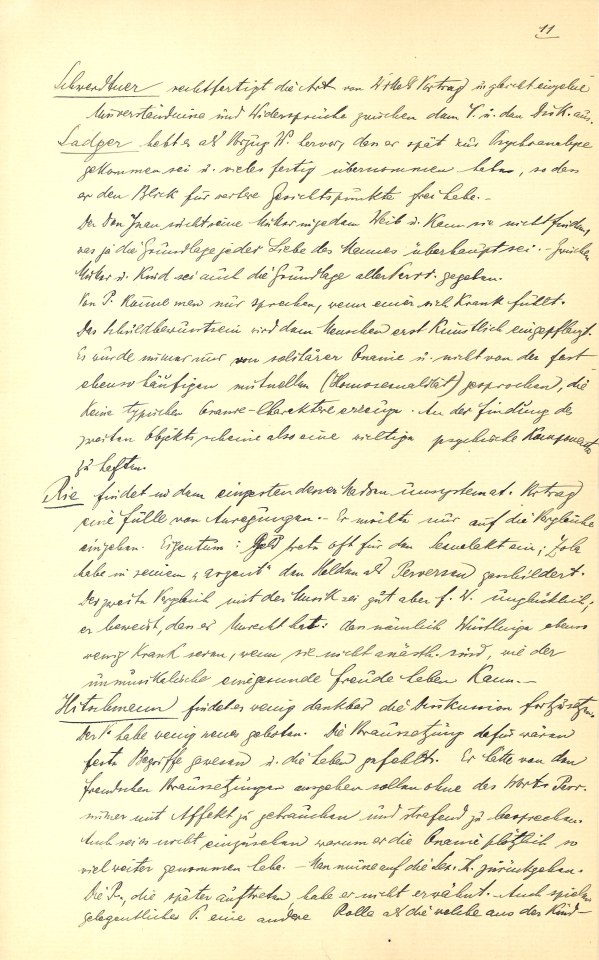 11
Schwerdtner rechtfertigt die Art von Wittels Vortrag u. gleicht einzelne
Missverständnisse und Widersprüche zwischen dem V. u. den Disk. aus.
Sadger hebt es als Vorzug W. hervor, dass er spät zur Psychoanalyse
gekommen sei u. vieles fertig übernommen habe, so dass
er den Blick für weitere Gesichtspunkte frei habe. -
Der Don Juan sucht seine Mutter in jedem Weib u. kann sie nicht finden,
was ja die Grundlage jeder Liebe des Mannes überhaupt sei. - Zwischen
Mutter u. Kind sei auch die Grundlage aller Perv. gegeben.
Von P. könne man nur sprechen, wenn einer sich krank fühlt.
Das Schuldbewusstsein wird dem Menschen erst künstlich eingepflanzt.
Es würde immer nur von solitärer Onanie u. nicht von der fast
ebenso häufigen mutuellen (Homosexualität) gesprochen, die
keine typischen Onanie-Charaktere erzeuge. An der Findung des
zweiten Objekts scheine also eine wichtige psychische Komponente
zu haften.
Rie findet in dem unsystemat. Vortrag
eine Fülle von Anregungen. - Er möchte nur auf die Vergleiche
eingehen. Eigentum: Geld trete oft für den ein; Zola
habe in seinem "argent" den Helden als Perversen geschildert.
Der zweite Vergleich mit der Musik sei gut aber f. W. unglücklich;
er beweist, dass er Unrecht hat: dass nämlich Wüstlinge ebenso
wenig krank seien, wenn sie nicht anästh. sind, wie der
unmusikalische eine gesunde Freude haben kann. -
Hitschmann findet es wenig dankbar die Diskussion fortzusetzen.
Der V. habe wenig neues geboten. Die Voraussetzung dafür wären
feste Begriffe gewesen u. die haben gefehlt. Er hätte von den
Freudschen Voraussetzungen ausgehen sollen ohne das Wort Perv.
immer mit Affekt zu gebrauchen und strafend zu besprechen.
Auch sei es nicht einzusehen warum er die Onanie plötzlich so
viel weiter genommen habe. - Man müsse auf die sex. K. zurückgehen.
Die P., die später auftreten habe er nicht erwähnt. Auch spielen
gelegentliche P. eine andere Rolle als die welche aus der Kind-